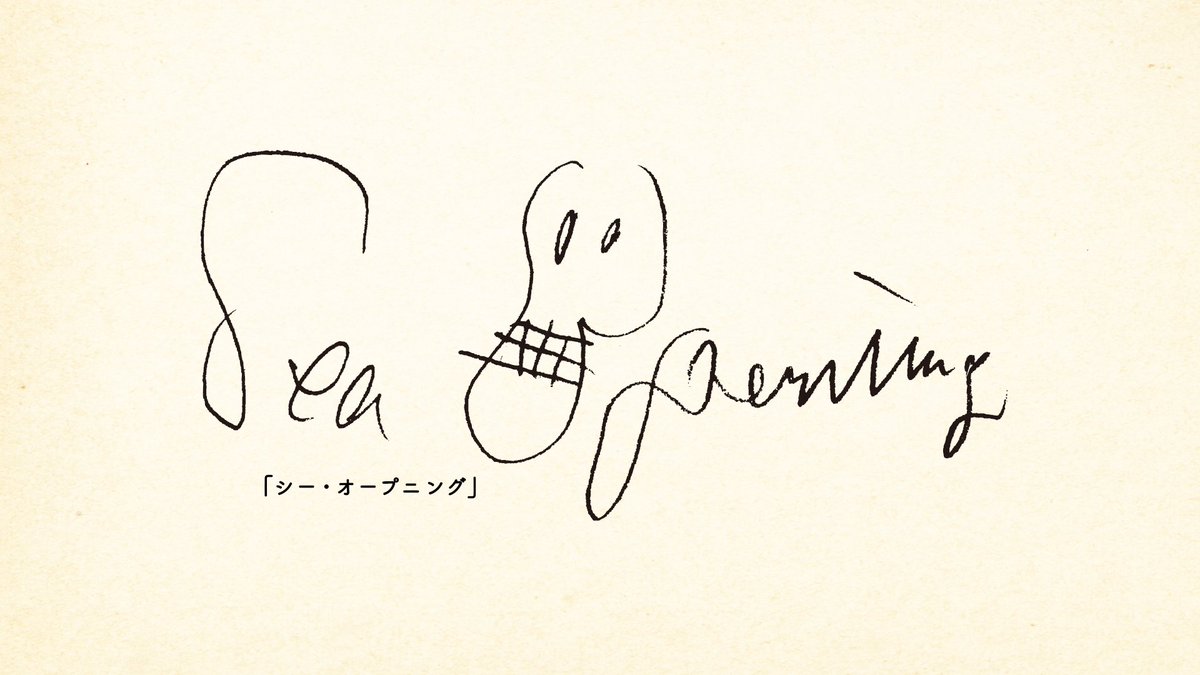 Sea Opening
「シー・オープニング」